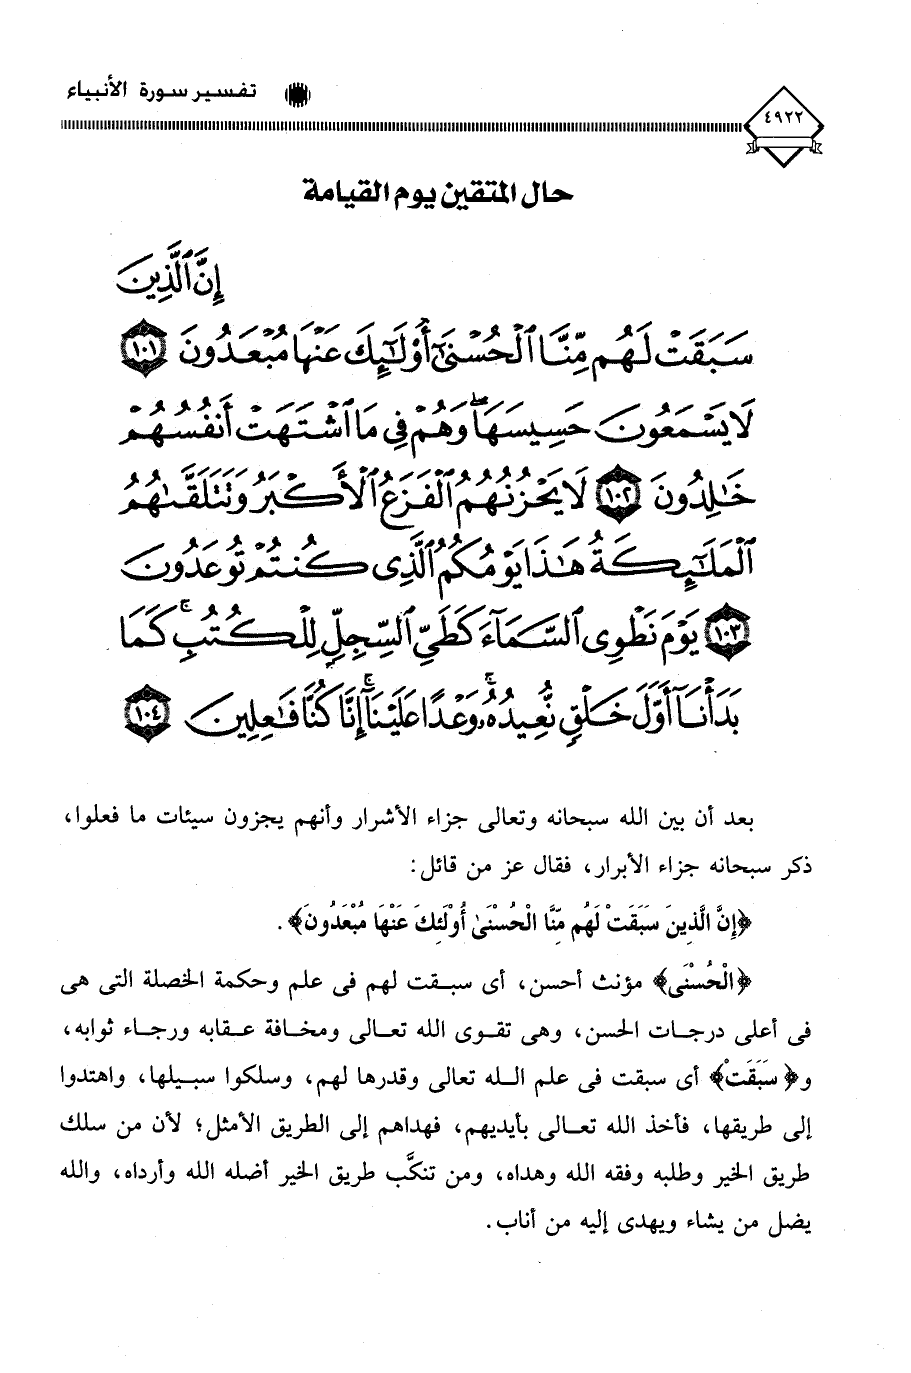 تفسير سورة الأنبياء
٤٩٢٢
حال المتقين يوم القيامة
إِنَّ ٱلَّذِينَ
سَبَقَتْ لَهُم مِّنَّا ٱلْحُسْنَىٰٓ أُو۟لَٰٓئِكَ عَنْهَا مُبْعَدُونَ ١٠١
لَا يَسْمَعُونَ حَسِيسَهَا ۖ وَهُمْ فِى مَا ٱشْتَهَتْ أَنفُسُهُمْ
خَٰلِدُونَ ١٠٢ لَا يَحْزُنُهُمُ ٱلْفَزَعُ ٱلْأَكْبَرُ وَتَتَلَقَّىٰهُمُ
ٱلْمَلَٰٓئِكَةُ هَٰذَا يَوْمُكُمُ ٱلَّذِى كُنتُمْ تُوعَدُونَ
١٠٣ يَوْمَ نَطْوِى ٱلسَّمَآءَ كَطَىِّ ٱلسِّجِلِّ لِلْكُتُبِ ۚ كَمَا
بَدَأْنَآ أَوَّلَ خَلْقٍ نُّعِيدُهُۥ ۚ وَعْدًا عَلَيْنَآ ۚ إِنَّا كُنَّا فَٰعِلِينَ ١٠٤
بعد أن بين الله سبحانه وتعالى جزاء الأشرار وأنهم يجزون سيئات ما فعلوا،
ذكر سبحانه جزاء الأبرار، فقال عز من قائل:
﴿إِنَّ الَّذِينَ سَبَقَتْ لَهُم مِّنَّا الْحُسْنَىٰ أُوْلَئِكَ عَنْهَا مُبْعَدُونَ﴾.
﴿الْحُسْنَى﴾ مؤنث أحسن، أى سبقت لهم فى علم وحكمة الخصلة التى هى
فى أعلى درجات الحسن، وهى تقوى الله تعالى ومخافة عقابه ورجاء ثوابه،
و﴿سَبَقَتْ﴾ أى سبقت فى علم الله تعالى وقدرها لهم، وسلكوا سبيلها، واهتدوا
إلى طريقها، فأخذ الله تعالى بأيديهم، فهداهم إلى الطريق الأمثل؛ لأن من سلك
طريق الخير وطلبه وفقه الله وهداه، ومن تنكَّب طريق الخير أضله الله وأرداه، والله
يضل من يشاء ويهدى إليه من أناب.